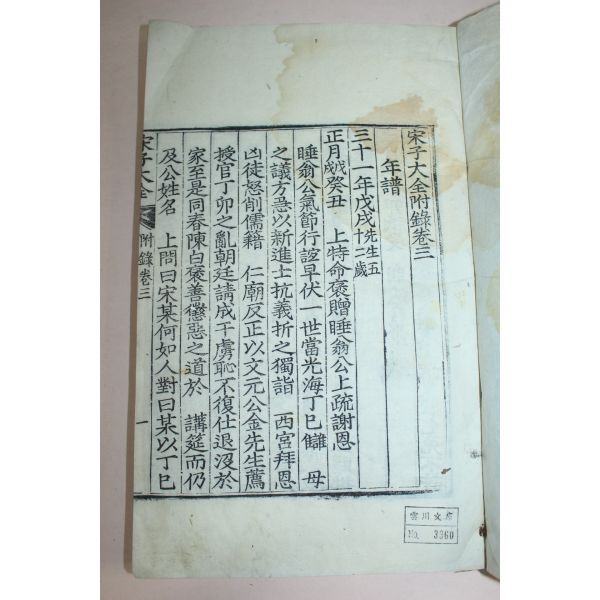 宋子大全附錄卷三
年譜
三十一年戊戌先生五十二歲
正月戊戌癸丑 上特命褒贈睡翁公上疏謝恩
睡翁公氣節行誼早伏一世當光海丁巳讎 母
之議方惎以新進士抗義折之獨詣 西宮拜恩
凶徒怒削儒籍 仁廟反正以文元公金先生薦
授官丁卯之亂朝廷請成干虜恥不復仕退沒於
家至是同春陳白褒善懲惡之道於 講筵而仍
及公姓名 上問曰宋某何如人對曰某以丁巳
宋子大全 附錄卷三 一
雲川文庫
No. 3360